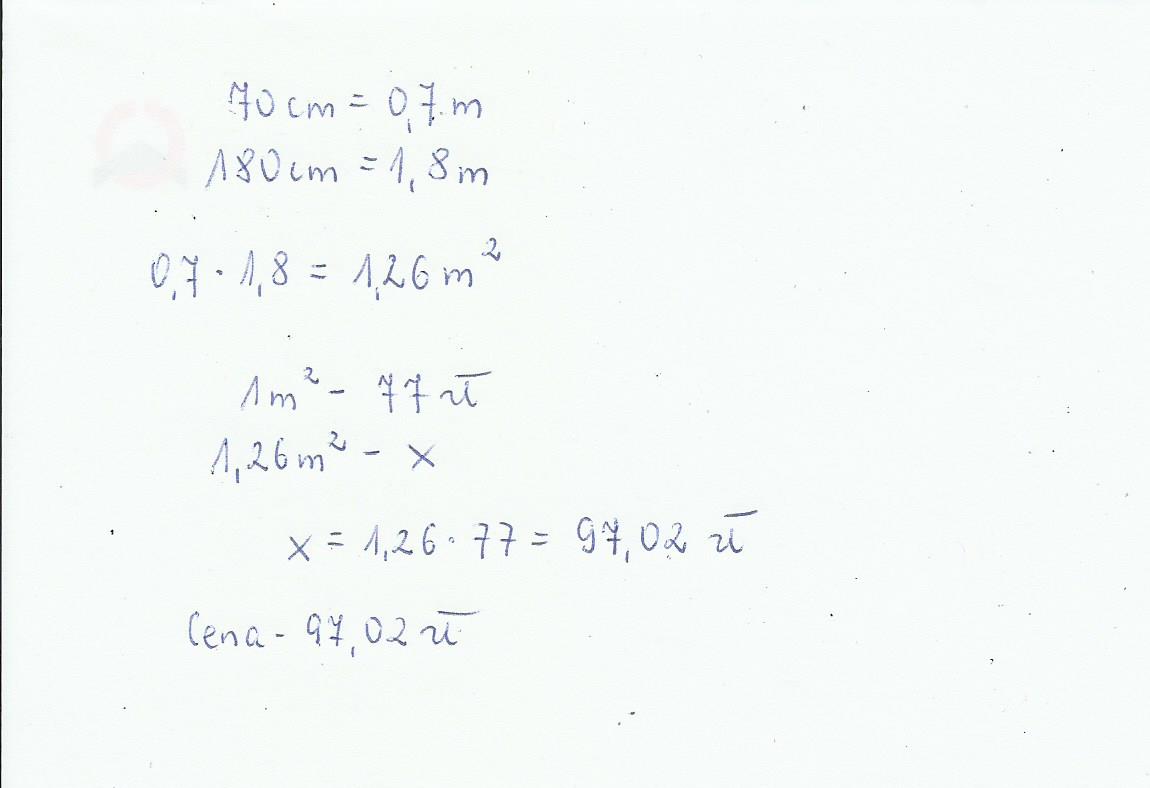 70 cm = 0,7 m
180 cm = 1,8 m
0,7 · 1,8 = 1,26 m²
1 m² - 77 zł
1,26 m² - x
x = 1,26 · 77 = 97,02 zł
Cena - 97,02 zł